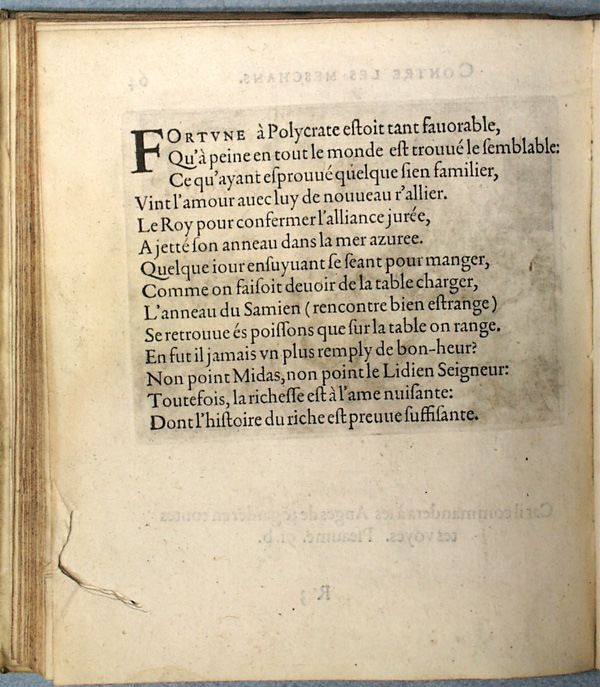 FORTVNE à Polycrate eſtoit tant fauorable,
Qu'à peine en tout le monde eſt trouué le ſemblable:
Ce qu'ayant eſprouué quelque ſien familier,
Vint l'amour auec luy de nouueau r'allier.
Le Roy pour confermer l'alliance jurée,
A jetté ſon anneau dans la mer azuree.
Quelque iour enſuyuant ſe ſeant pour manger,
Comme on faiſoit deuoir de la table charger,
L'anneau du Samien (rencontre bien eſtrange)
Se retrouue és poiſſons que ſur la table on range.
En fut il jamais vn plus remply de bon-heur?
Non point Midas, non point le Lidien Seigneur:
Toutefois, la richeſſe eſt à l'ame nuiſante:
Dont l'hiſtoire du riche eſt preuue ſuffiſante.